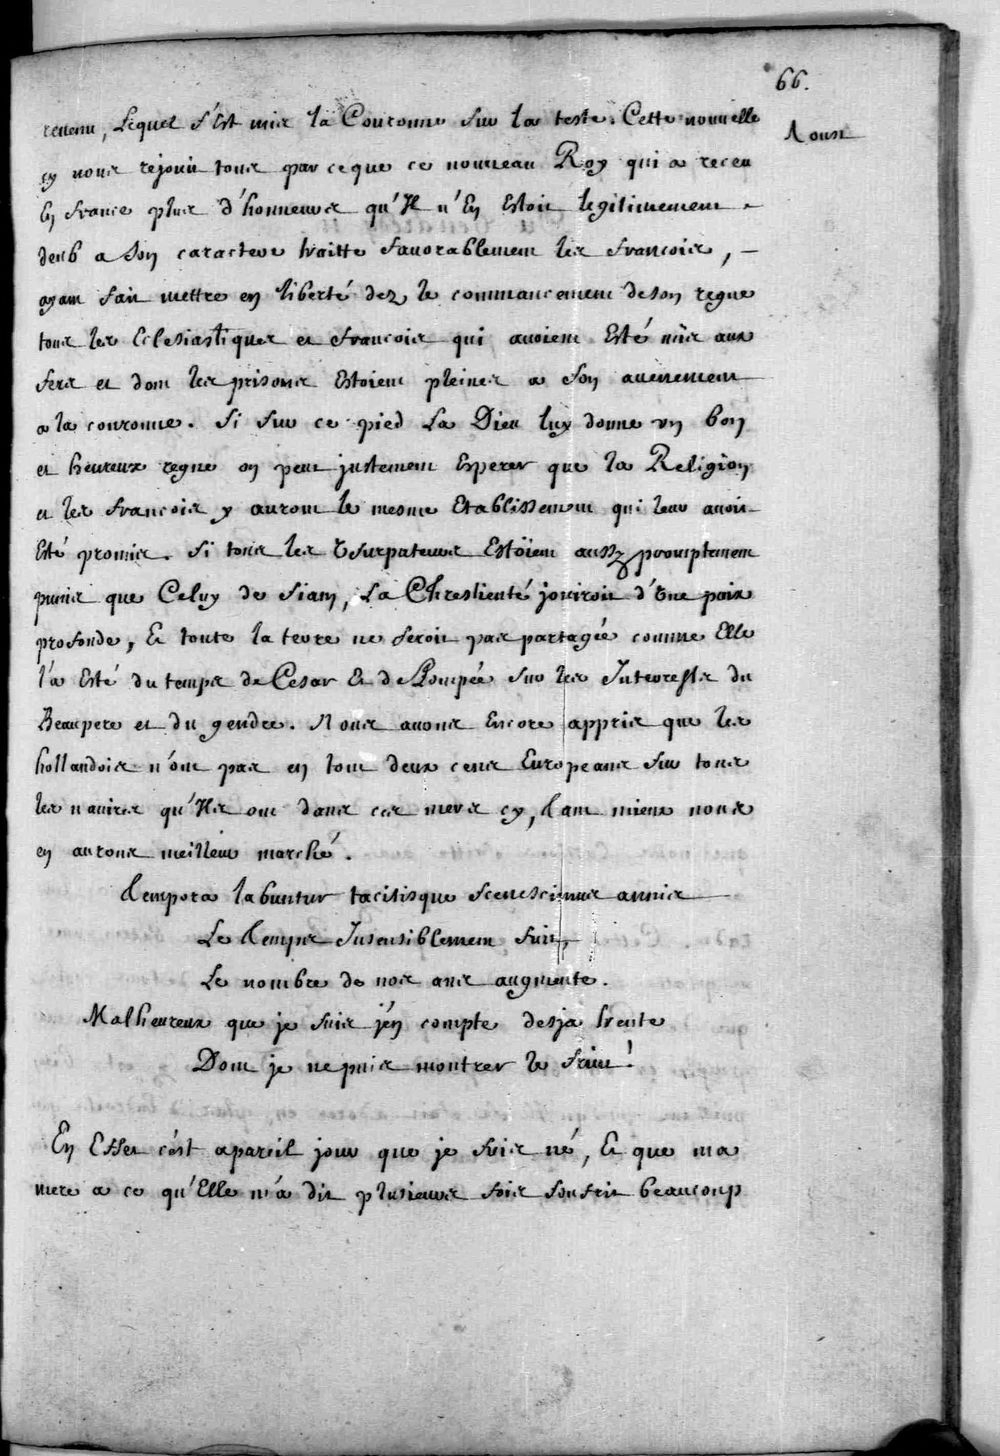 66.
Aoust
revenu, Lequel s'est mis la Couronne sur la teste. Cette nouvelle
cy nous rejouit tous parceque ce nouveau Roy qui a receu
En france plus d'honneurs qu'Il n'En Estoit legitimement
deub a son caractere traitte favorablement les francois,
ayant fait mettre en liberté dez le commancement de son regne
tous les Eclesiastiques et francois qui avoient Esté mis aux
fers et dont les prisons Estoient pleines a son avenement
a la couronne. Si sur ce pied La Dieu luy donne un bon
et heureux regne on peut justement Esperer que la Religion
et les francois y auront le mesme Etablissement qui leur avoit
Esté promis. Si tous les Usurpateurs Estoient aussy promptement
punis que Celuy de Siam, La Chrestienté joüiroit d'Une paix
profonde, Et toute la terre ne seroit pas partagée comme Elle
l'a Esté du temps de Cesar Et de Pompée sur les Interests du
Beaupere et du gendre. Nous avons Encore appris que les
hollandois n'ont pas en tout deux cens Europeans sur tous
les navires qu'Ils ont dans ces mers cy, tant mieux nous
en aurons meilleur marché.
Tempora labuntur tacitisque senescimus annis
Le temps Insensiblement fuit,
Le nombre de nos ans augmente.
Malheureux que je suis j'en compte desja trente
Dont je ne puis montrer le fruit!
En Effet c'est a pareil jour que je suis né, Et que ma
mere a ce qu'Elle m'a dit plusieurs fois souffrit beaucoup